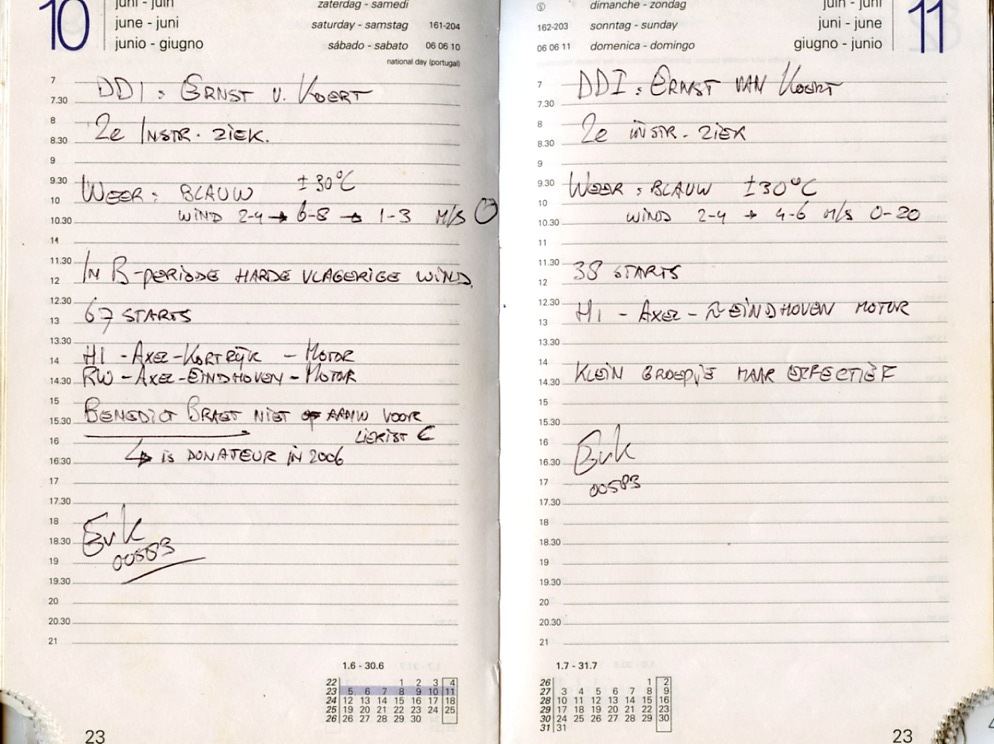 10
juni - juin
june - juni
junio - giugno
zaterdag - samedi
saturday - samstag 161-204
sábado - sabato 06 06 10
national day (portugal)
7 DDI: ERNST V. KOERT
7.30
8 2e INSTR. ZIEK.
8.30
9
9.30 WEER: BLAUW ±30°C
10
10.30 WIND 2-4 → 6-8 → 1-3 M/S
11
11.30 IN B-PERIODE HARDE VLAGERIGE WIND.
12
12.30 67 STARTS
13
13.30
14 H1 - AXEL - KORTRIJK - MOTOR
14.30 RW - AXEL - EINDHOVEN - MOTOR
15
15.30 BENEDICT BRAET NIET AANW VOOR
16 LIERIST €
16.30 ↳ IS DONATEUR IN 2006
17
17.30
18 EvK
18.30
19 00583
19.30
20
20.30
21
1.6 - 30.6
22 1 2 3 4
23 5 6 7 8 9 10 11
24 12 13 14 15 16 17 18
25 19 20 21 22 23 24 25
26 26 27 28 29 30
23
dimanche - zondag
162-203 sonntag - sunday
06 06 11 domenica - domingo
juin - juni
juni - june
giugno - junio
11
7 DDI: ERNST VAN KOERT
7.30
8 2e INSTR. ZIEK
8.30
9
9.30 WEER: BLAUW ±30°C
10
10.30 WIND 2-4 → 4-6 M/S 0-20
11
11.30 38 STARTS
12
12.30 H1 - AXEL - EINDHOVEN MOTOR
13
13.30
14
14.30 KLEIN GROEPJE MAAR EFFECTIEF
15
15.30
16 EvK
16.30
17 00583
17.30
18
18.30
19
19.30
20
20.30
21
1.7 - 31.7
26 1 2
27 3 4 5 6 7 8 9
28 10 11 12 13 14 15 16
29 17 18 19 20 21 22 23
30 24 25 26 27 28 29 30
31 31
23